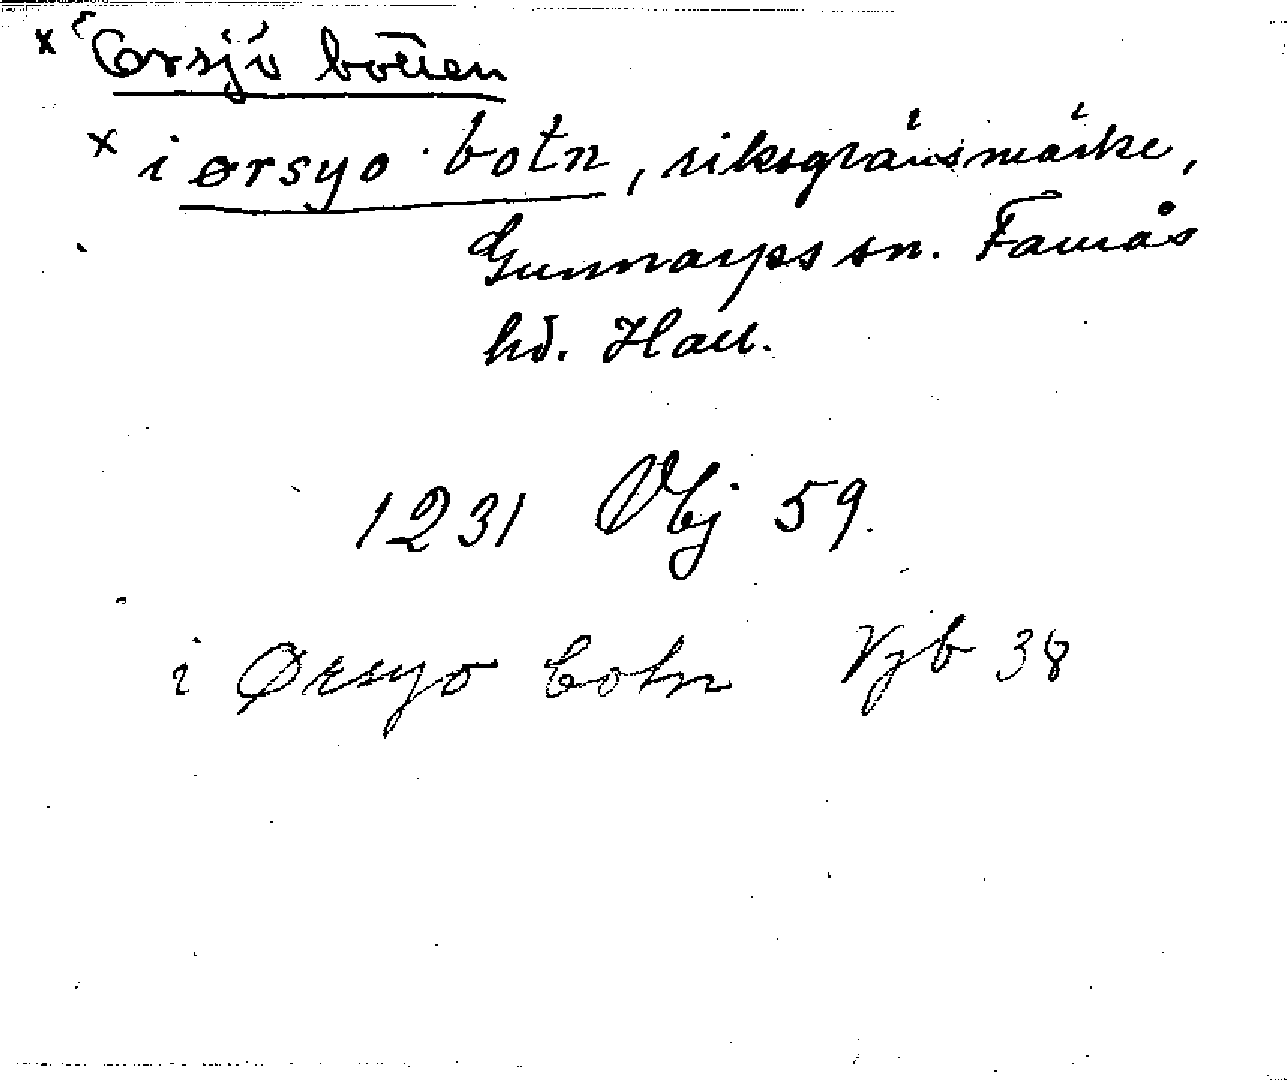 x Örsjö botten
x i ørsyo botn, riksgränsmärke,
Gunnarps sn. Faurås
hd. Hall.
1231 Vbj 59.
i Ørsyo botn Vjb 38